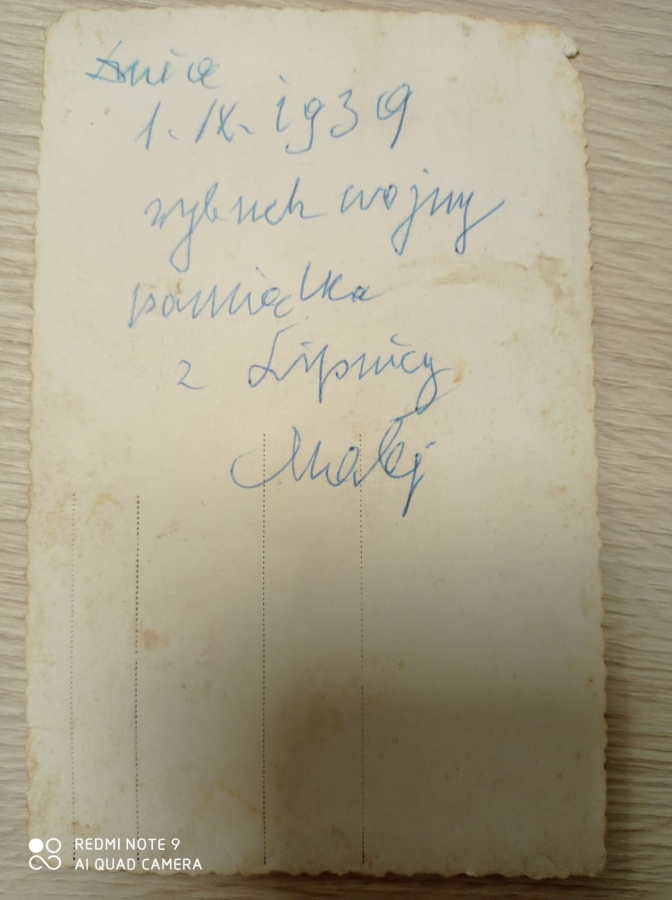 Dnia
1. IX. 1939
wybuch wojny
pamiątka
z Lipnicy
Małej
REDMI NOTE 9
AI QUAD CAMERA